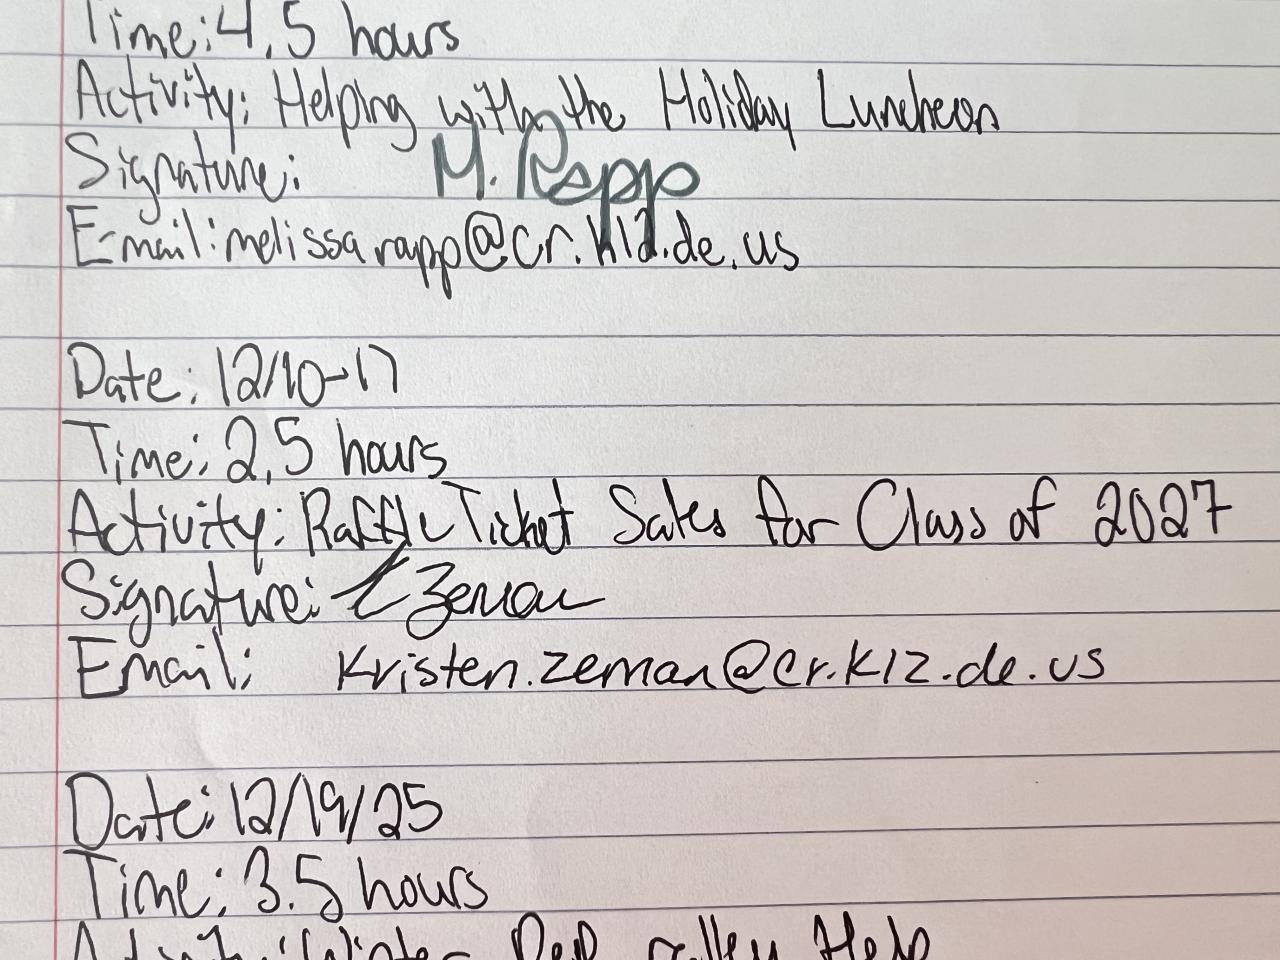 Time: 4.5 hours
Activity: Helping with the Holiday Luncheon
Signature: M. Rapp
E-mail: melissa.rapp@cr.k12.de.us
Date: 12/10-17
Time: 2.5 hours
Activity: Raffle Ticket Sales for Class of 2027
Signature: K Zeman
Email: kristen.zeman@cr.k12.de.us
Date: 12/19/25
Time: 3.5 hours
Activity: Winter Pep rally Help